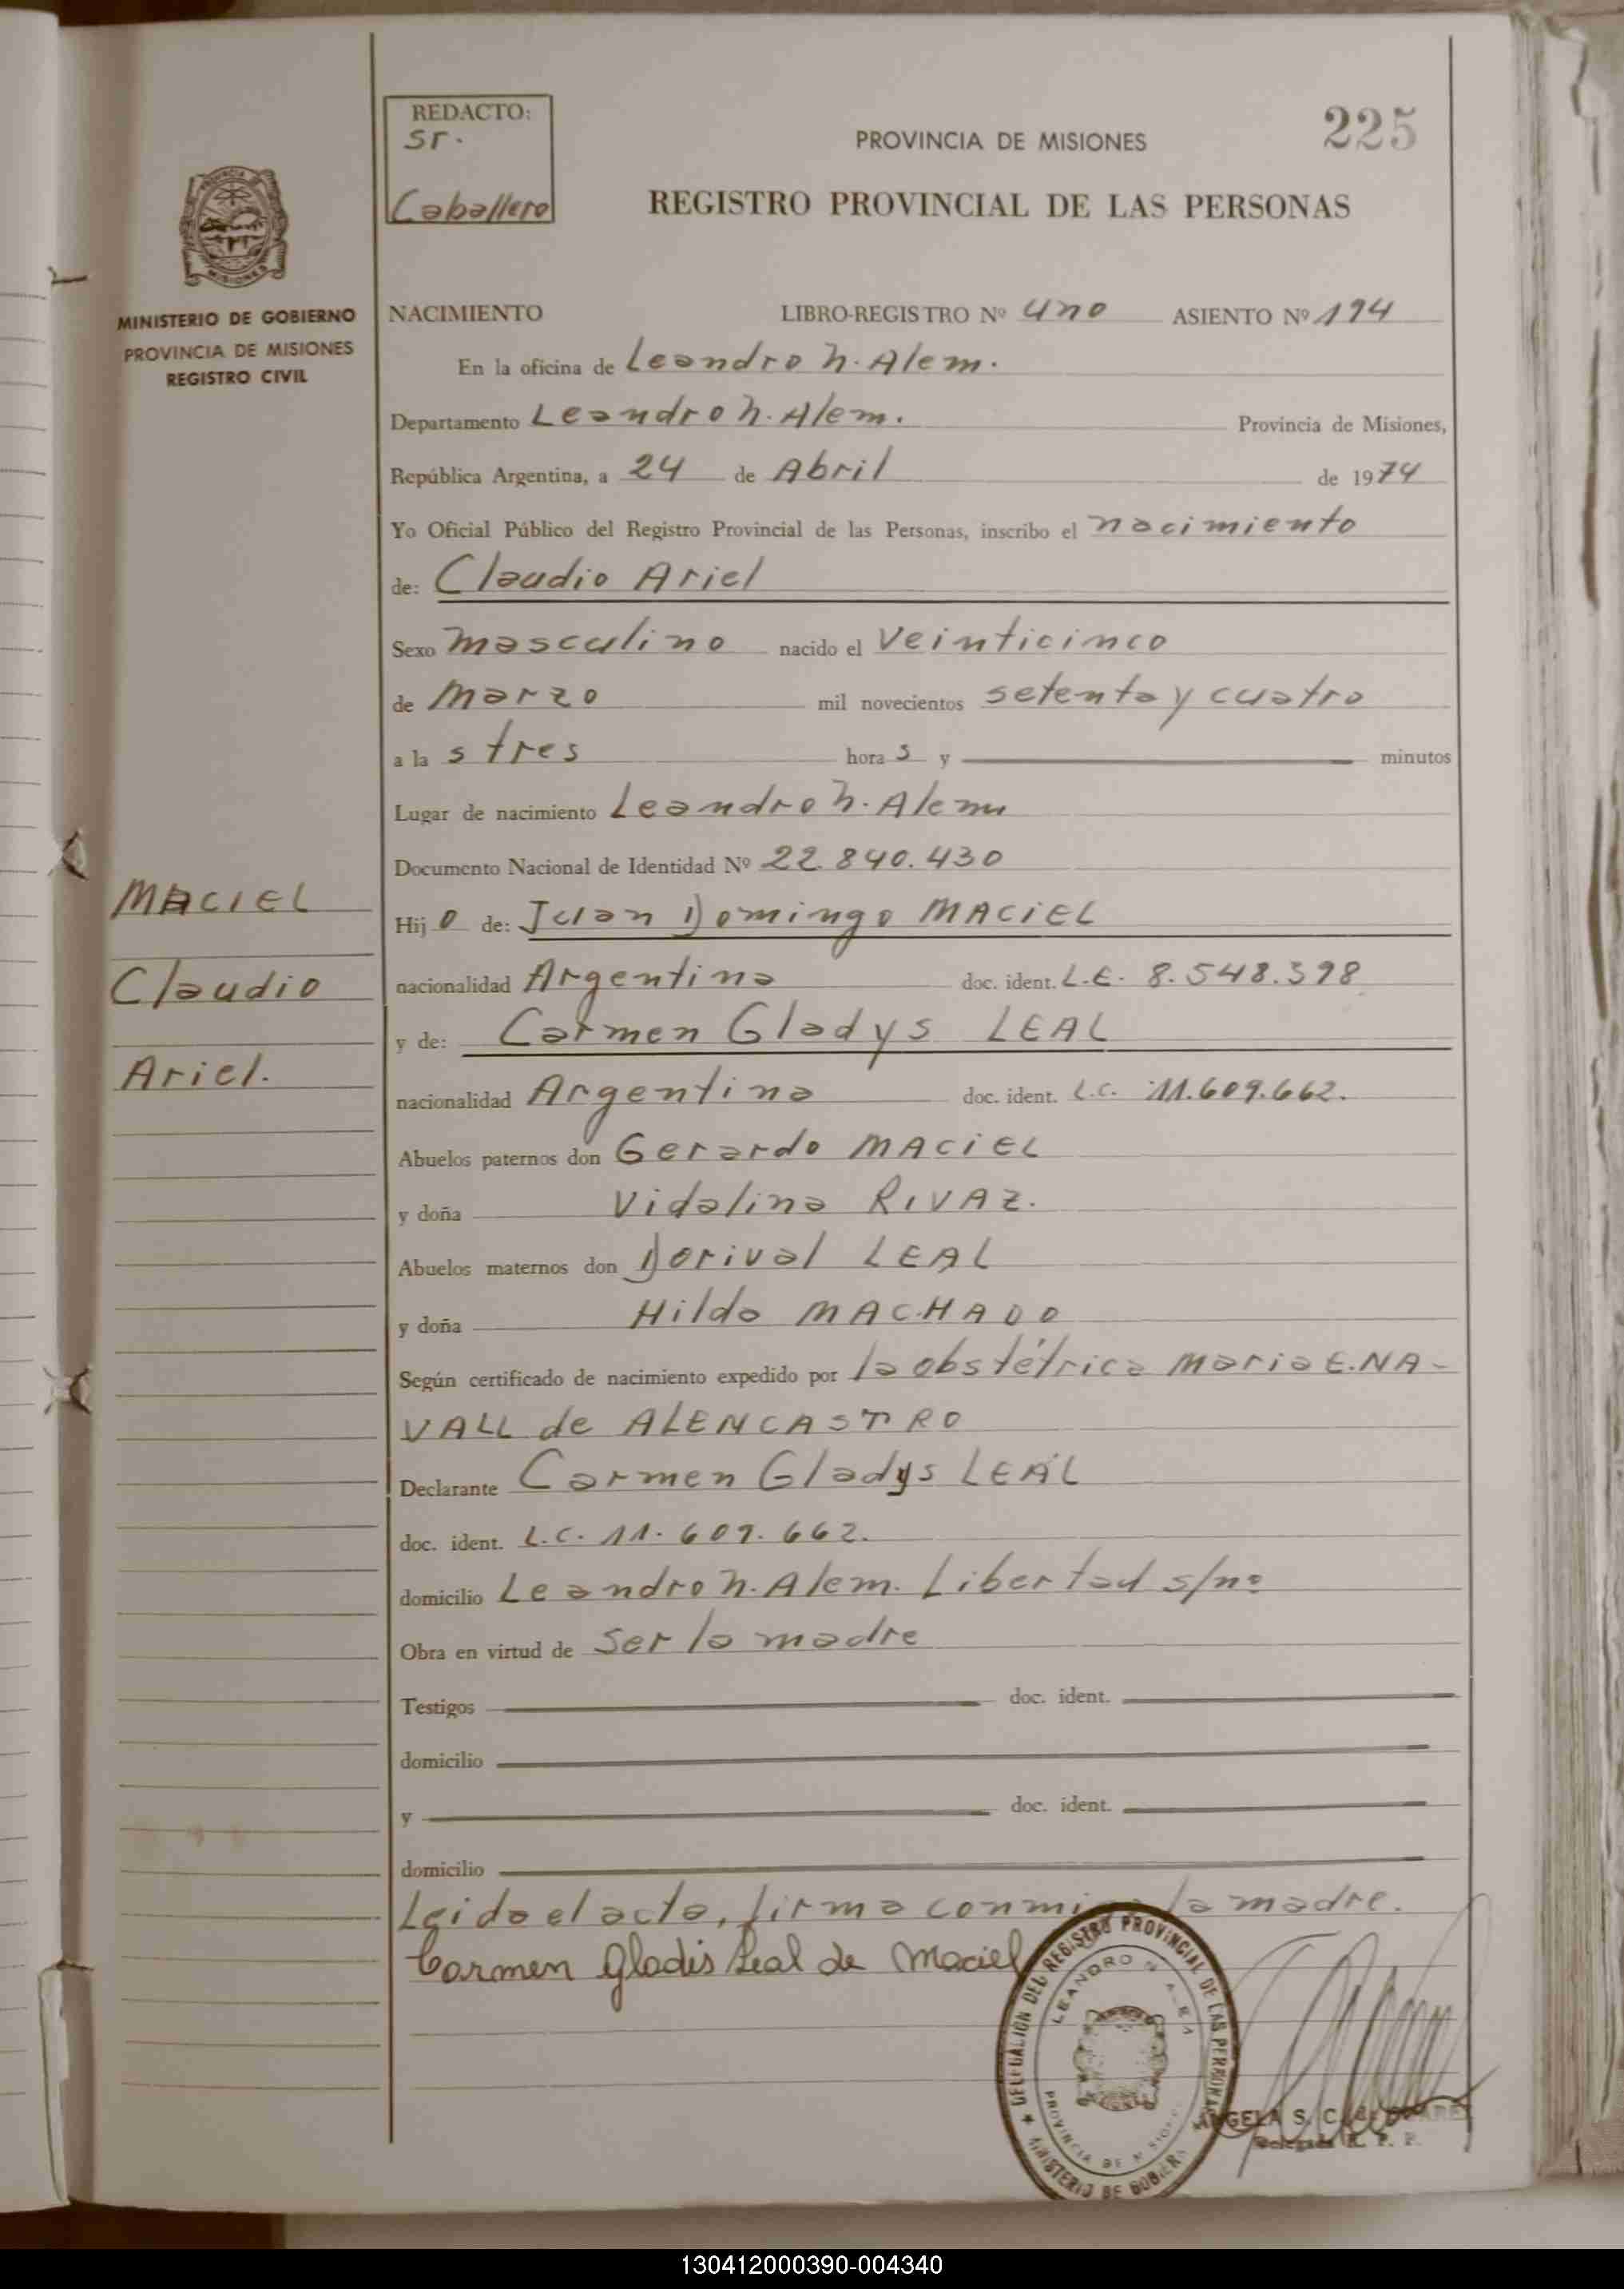 REDACTO:
Sr.
Caballero
225
PROVINCIA DE MISIONES
REGISTRO PROVINCIAL DE LAS PERSONAS
MINISTERIO DE GOBIERNO
PROVINCIA DE MISIONES
REGISTRO CIVIL
NACIMIENTO LIBRO-REGISTRO Nº uno ASIENTO Nº 194
En la oficina de Leandro N. Alem.
Departamento Leandro N. Alem. Provincia de Misiones,
República Argentina, a 24 de Abril de 1974
Yo Oficial Público del Registro Provincial de las Personas, inscribo el nacimiento
de: Claudio Ariel
Sexo masculino nacido el veinticinco
de Marzo mil novecientos setenta y cuatro
a la s tres hora s y minutos
Lugar de nacimiento Leandro N. Alem
Documento Nacional de Identidad Nº 22.840.430
MACIEL
Claudio
Ariel.
Hij o de: Juan Domingo MACIEL
nacionalidad Argentina doc. ident. L.E. 8.548.398
y de: Carmen Gladys LEAL
nacionalidad Argentina doc. ident. L.C. 11.609.662.
Abuelos paternos don Gerardo MACIEL
y doña Vidalina RIVAZ.
Abuelos maternos don Dorival LEAL
y doña Hilda MACHADO
Según certificado de nacimiento expedido por la obstétrica Maria E. NA-
VALL de ALENCASTRO
Declarante Carmen Gladys LEAL
doc. ident. L.C. 11.609.662.
domicilio Leandro N. Alem. Libertad s/nº
Obra en virtud de ser la madre
Testigos doc. ident.
domicilio
y doc. ident.
domicilio
Leida el acta, firma conmigo la madre.
Carmen Gladis Leal de Maciel
DELEGACION DEL REGISTRO PROVINCIAL DE LAS PERSONAS
LEANDRO N. ALEM
PROVINCIA DE MISIONES
MINISTERIO DE GOBIERNO
ANGELA S. C. de
Delegada R. P. P.
130412000390-004340